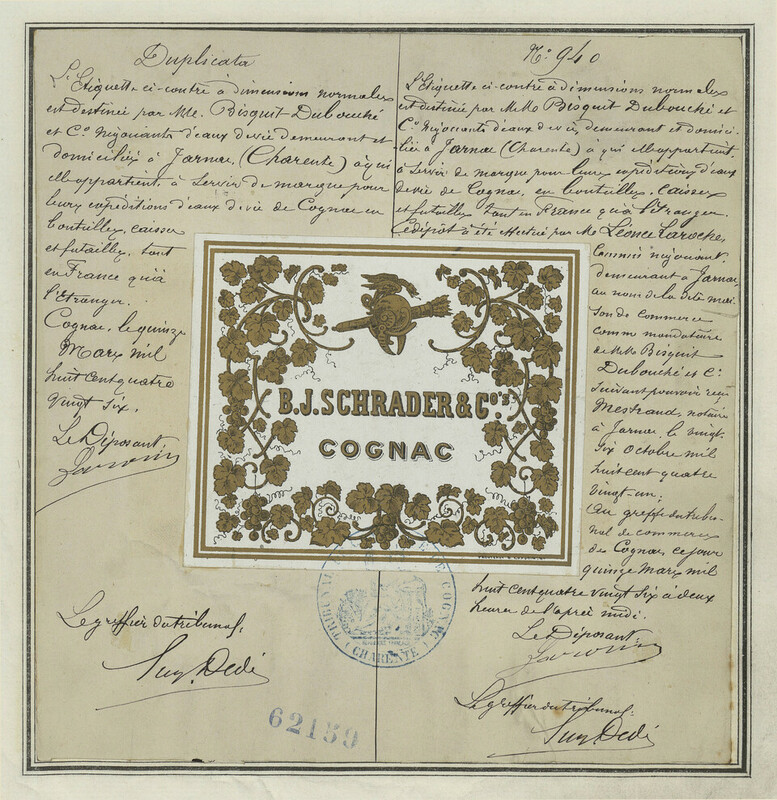 Duplicata
L'Etiquette ci-contre à dimensions normales
est destinée par MM. Bisquit Dubouché
et Cº négociants d'eaux de vie demeurant et
domiciliés à Jarnac, (Charente) à qui
elle appartient, à servir de marque pour
leurs expéditions d'eaux de vie de Cognac en
bouteilles, caisses
et futailles, tant
en France qu'à
l'Etranger.
Cognac, le quinze
Mars mil
huit cent quatre
vingt six.
Le Déposant
Le greffier du tribunal,
Nº 940
L'Etiquette ci-contre à dimensions normales
est destinée par MM. Bisquit Dubouché et
Cº négociants d'eaux de vie, demeurant et domici-
liés à Jarnac (Charente) à qui elle appartient,
à servir de marque pour leurs expéditions d'eaux
de vie de Cognac, en bouteilles, caisses
et futailles tant en France qu'à l'étranger.
Ce dépôt a été effectué par Mr Léonce Laroche,
Commis négociant,
demeurant à Jarnac,
au nom de la dite mai-
son de commerce
comme mandataire
de MM. Bisquit
Dubouché et Cº
suivant pouvoir reçu
Mestraud, notaire
à Jarnac, le vingt-
six octobre mil
huit cent quatre
vingt-un;
Au greffe du tribu-
nal de commerce
de Cognac, ce jour
quinze Mars mil
huit cent quatre vingt six à deux
heures de l'après midi.
Le Déposant
Le greffier du tribunal,
B.J. SCHRADER & Co's
COGNAC
TRIBUNAL DE COGNAC
(CHARENTE)
62159